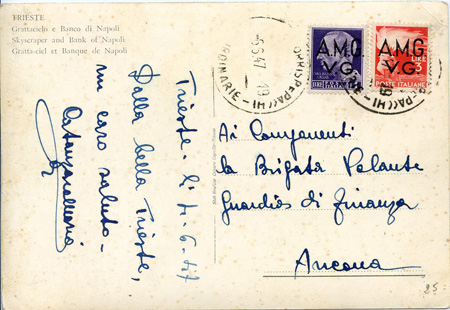 TRIESTE
Grattacielo e Banco di Napoli
Skyscraper and Bank of Napoli
Gratta-ciel et Banque de Napoli
Trieste - li 4-6-47
Dalla bella Trieste,
un caro saluto -
A.M.G.
V.G.
A.M.G.
V.G.
LIRE
LIRE 3
POSTE ITALIANE
ORDINARIE
-5.6.47 19
CORRISP. PACCHI
Ai Componenti
la Brigata Volante
Guardia di Finanza
Ancona
25.-